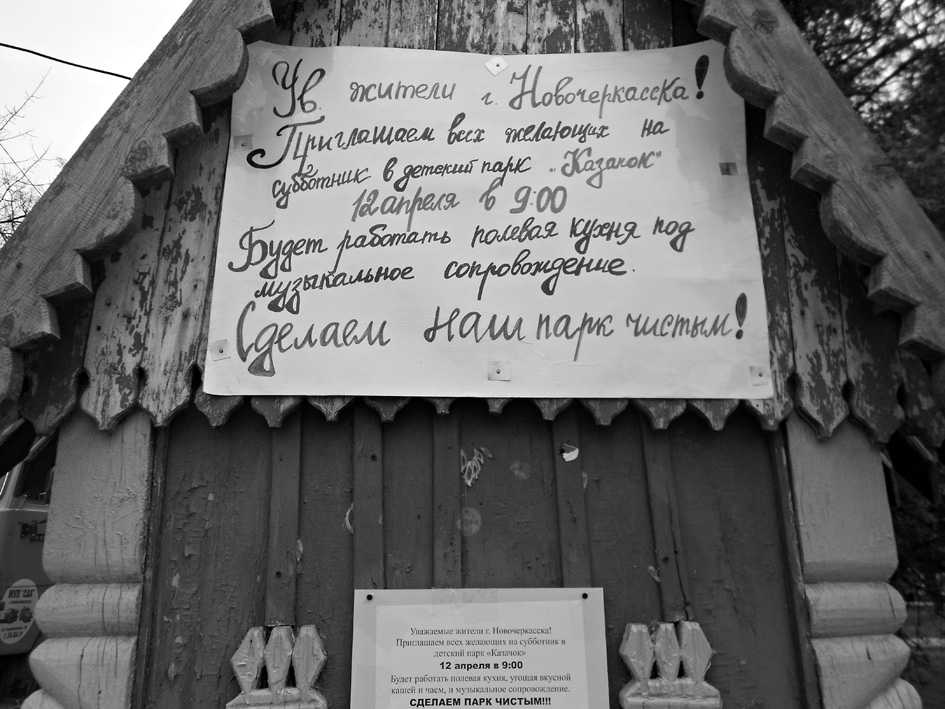 Ув. жители г. Новочеркасска!
Приглашаем всех желающих на
субботник в детский парк "Казачок"
12 апреля в 9:00
Будет работать полевая кухня под
музыкальное сопровождение.
Сделаем наш парк чистым!
Уважаемые жители г. Новочеркасска!
Приглашаем всех желающих на субботник в
детский парк «Казачок»
12 апреля в 9:00
Будет работать полевая кухня, угощая вкусной
кашей и чаем, и музыкальное сопровождение.
СДЕЛАЕМ ПАРК ЧИСТЫМ!!!